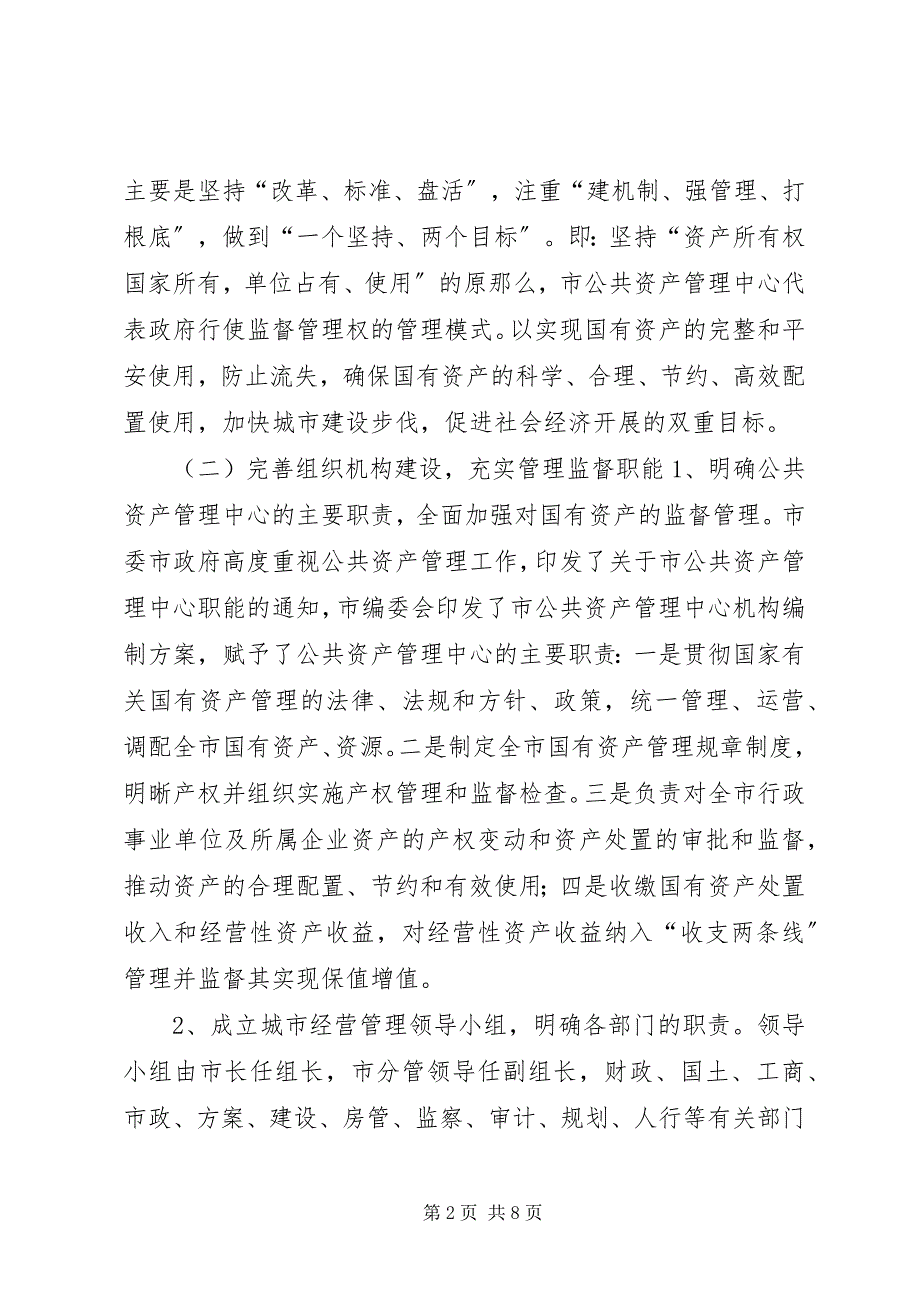 主要是坚持“改革、标准、盘活〞，注重“建机制、强管理、打
根底〞，做到“一个坚持、两个目标〞。即：坚持“资产所有权
国家所有，单位占有、使用〞的原那么，市公共资产管理中心代
表政府行使监督管理权的管理模式。以实现国有资产的完整和平
安使用，防止流失，确保国有资产的科学、合理、节约、高效配
置使用，加快城市建设步伐，促进社会经济开展的双重目标。
（二）完善组织机构建设，充实管理监督职能 1、明确公共
资产管理中心的主要职责，全面加强对国有资产的监督管理。市
委市政府高度重视公共资产管理工作，印发了关于市公共资产管
理中心职能的通知，市编委会印发了市公共资产管理中心机构编
制方案，赋予了公共资产管理中心的主要职责：一是贯彻国家有
关国有资产管理的法律、法规和方针、政策，统一管理、运营、
调配全市国有资产、资源。二是制定全市国有资产管理规章制度，
明晰产权并组织实施产权管理和监督检查。三是负责对全市行政
事业单位及所属企业资产的产权变动和资产处置的审批和监督，
推动资产的合理配置、节约和有效使用；四是收缴国有资产处置
收入和经营性资产收益，对经营性资产收益纳入“收支两条线〞
管理并监督其实现保值增值。
2、成立城市经营管理领导小组，明确各部门的职责。领导
小组由市长任组长，市分管领导任副组长，财政、国土、工商、
市政、方案、建设、房管、监察、审计、规划、人行等有关部门
第 2 页 共 8 页